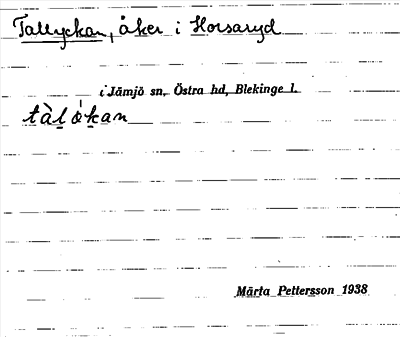 Tallyckan, åker i Horsaryd
i Jämjö sn, Östra hd, Blekinge l.
tàl̠ ó̠k̠an
Märta Pettersson 1938